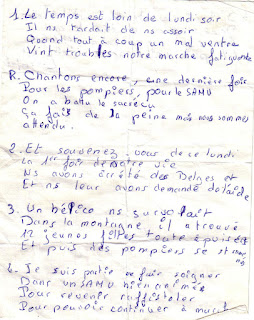 1. Le temps est loin de lundi soir
Il ns tardait de ns assoir
Quand tout à coup un mal ventre
Vint troubler notre marche fatiguante
R. Chantons encore, une dernière fois
Pour les pompiers, pour le SAMU
On a battu le
Ça fait de la peine mais nous sommes
attendu.
2. Et souvenez-vous de ce lundi
La 1ère fois de notre vie
Ns avons arrêté des Belges
Et ns leur avons demandé de l'aide
3. Un hélico ns survolait
Dans la montagne il a trouvé
12 jeunes filles toute épuisées
Et puis des pompiers se st
4. Je suis partie me faire soigner
Dans un SAMU bien
Pour revenir
Pour pouvoir continuer à